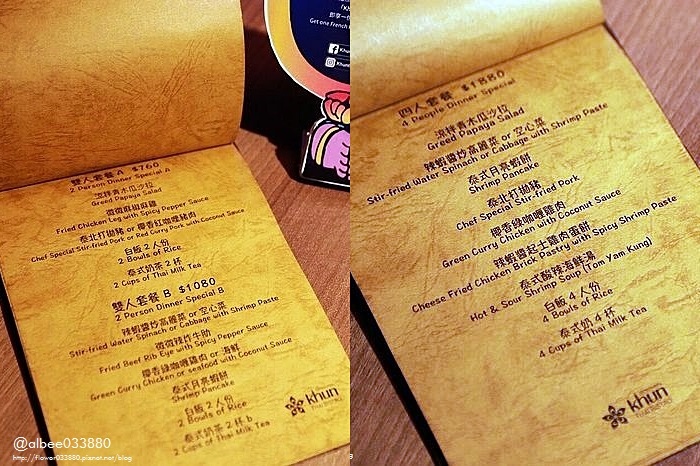 即享一份
Get one French
雙人套餐A $760
2 Person Dinner Special A
涼拌青木瓜沙拉
Greed Papaya Salad
微微麻椒雞腿
Fried Chicken Leg with Spicy Pepper Sauce
泰北打拋豬 or 椰香紅咖哩豬肉
Chef Special Stir-fried Pork or Red Curry Pork with Coconut Sauce
白飯 2 人份
2 Bowls of Rice
泰式奶茶 2 杯
2 Cups of Thai Milk Tea
雙人套餐 B $1080
2 Person Dinner Special B
辣蝦醬炒高麗菜 or 空心菜
Stir-fried Water Spinach or Cabbage with Shrimp Paste
微微辣炸牛肋
Fried Beef Rib Eye with Spicy Pepper Sauce
椰香綠咖哩雞肉 or 海鮮
Green Curry Chicken or seafood with Coconut Sauce
泰式月亮蝦餅
Shrimp Pancake
白飯 2 人份
2 Bowls of Rice
泰式奶茶 2 杯 b
2 Cups of Thai Milk Tea
khun
@albee033880
http://flower033880.pixnet.net/blog
四人套餐 $1880
4 People Dinner Special
涼拌青木瓜沙拉
Greed Papaya Salad
辣蝦醬炒高麗菜 or 空心菜
Stir-fried Water Spinach or Cabbage with Shrimp Paste
泰式月亮蝦餅
Shrimp Pancake
泰北打拋豬
Chef Special Stir-fried Pork
椰香綠咖哩雞肉
Green Curry Chicken with Coconut Sauce
辣蝦醬起士雞肉蛋餅
Cheese Fried Chicken Brick Pastry with Spicy Shrimp Paste
泰式酸辣海鮮湯
Hot & Sour Shrimp Soup (Tom Yam Kung)
白飯 4 人份
4 Bowls of Rice
泰式奶茶 4 杯
4 Cups of Thai Milk Tea
khun